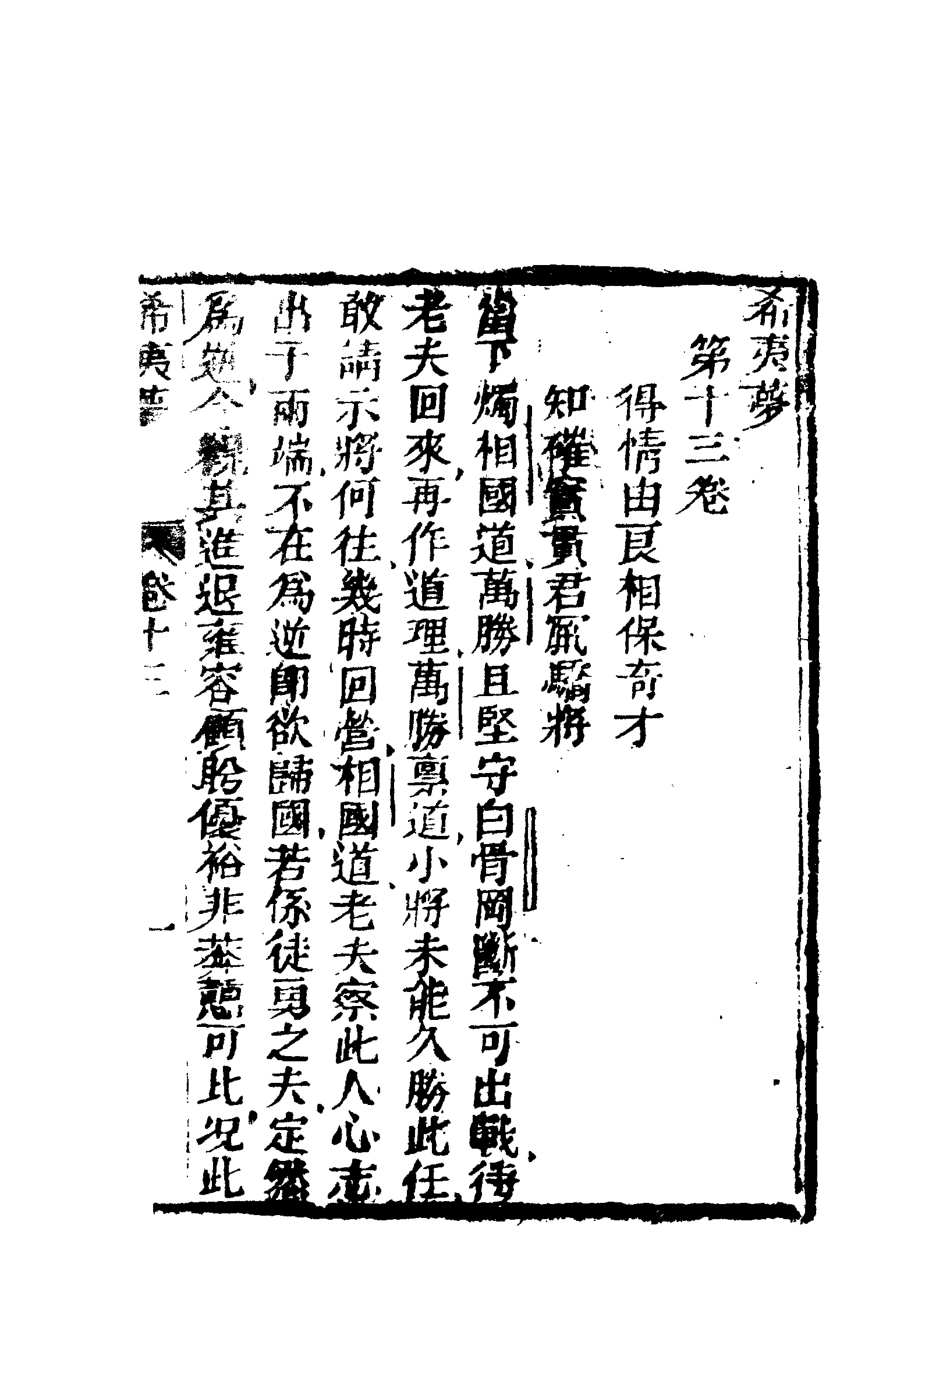 希夷夢
第十三卷
得情由良相保奇才
知確實貫君㞐驕將
當下燭相國道萬勝且堅守白骨岡斷不可出戰待
老夫回來再作道理萬勝禀道小將未能久勝此任
敢請示將何往幾時回營相國道老夫察此人心志
出于兩端不在爲逆卽欲歸國若係徒勇之夫定然
爲迎今觀其進退雍容顧盻優裕非莽戇可比况此
希夷夢 卷十三 一